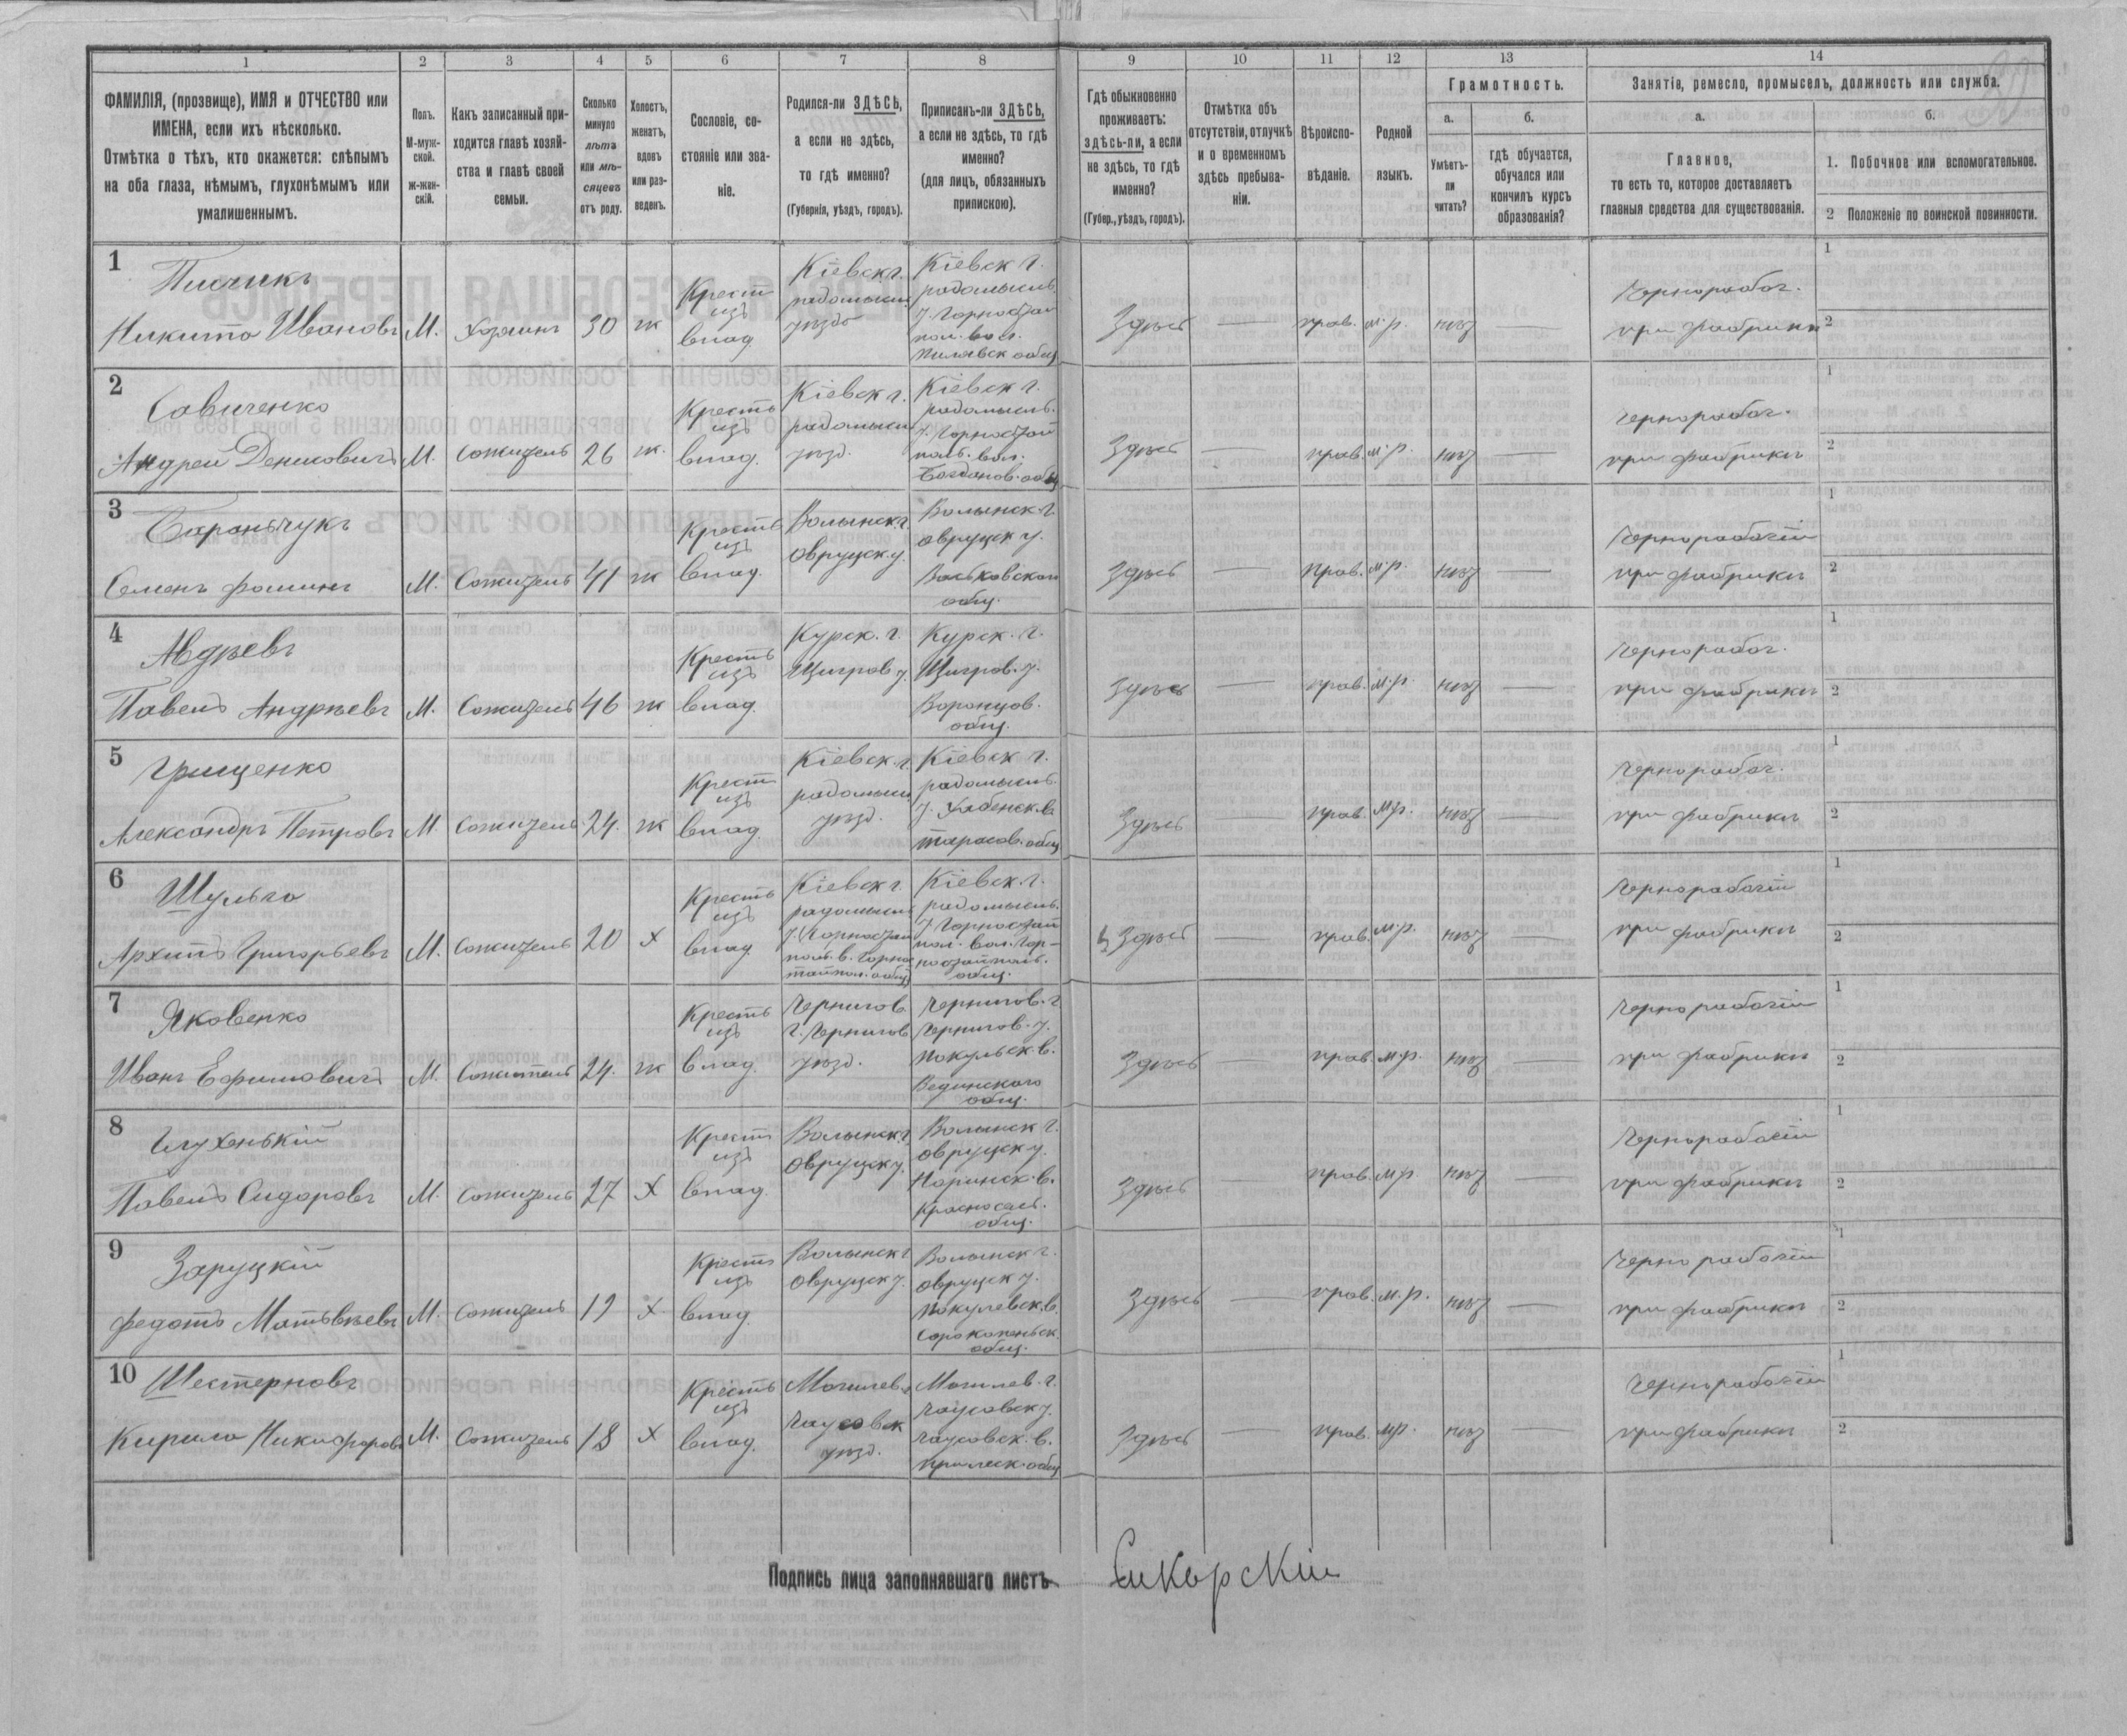 1 2 3 4 5 6 7 8 9 10 11 12 13 14
ФАМИЛІЯ, (прозвище), ИМЯ и ОТЧЕСТВО или
ИМЕНА, если ихъ нѣсколько.
Отмѣтка о тѣхъ, кто окажется: слѣпымъ
на оба глаза, нѣмымъ, глухонѣмымъ или
умалишеннымъ.
Полъ.
М-муж-
ской.
ж-жен-
скій.
Какъ записанный при-
ходится главѣ хозяй-
ства и главѣ своей
семьи.
Сколько
минуло
лѣтъ
или мѣ-
сяцевъ
отъ роду.
Холостъ,
женатъ,
вдовъ
или раз-
веденъ.
Сословіе, со-
стояніе или зва-
ніе.
Родился-ли ЗДѢСЬ,
а если не здѣсь,
то гдѣ именно?
(Губернія, уѣздъ, городъ).
Приписанъ-ли ЗДѢСЬ,
а если не здѣсь, то гдѣ
именно?
(для лицъ, обязанныхъ
припискою).
Гдѣ обыкновенно
проживаетъ:
здѣсь-ли, а если
не здѣсь, то гдѣ
именно?
(Губер., уѣздъ, городъ).
Отмѣтка объ
отсутствіи, отлучкѣ
и о временномъ
здѣсь пребыва-
ніи.
Вѣроиспо-
вѣданіе.
Родной
языкъ.
Грамотность.
а.
Умѣетъ-
ли
читать?
б.
гдѣ обучается,
обучался или
кончилъ курсъ
образованія?
Занятія, ремесло, промыселъ, должность или служба.
а.
Главное,
то есть то, которое доставляетъ
главныя средства для существованія.
б.
1. Побочное или вспомогательное.
2 Положеніе по воинской повинности.
1
Пичикъ
Никита Ивановъ М. Хозяинъ 30 ж
Крест
изъ
влад.
Кіевск г.
радомысл.
уѣздъ
Кіевск г.
радомысль.
у. Горностай
пол. вол.
общ
Здѣсь — прав. м.р. нѣт —
Чернорабоч.
при фабрики
1
2
2
Савиченко
Андрей Денисовичъ М. Сожитель 26 ж.
Кресть
изъ
влад.
Кіевск г.
радомысл
уѣзд.
Кіевск г.
радомысль.
у. Горностай
поль. вол.
Богданов. общ
Здѣсь — прав. м.р. нѣт —
Чернорабоч.
при фабрики
1
2
3
Баранчукъ
Семенъ Фоминъ М. Сожитель 41 ж
Кресть
изъ
влад.
Волынск г.
Овруцк. у.
Волынск. г.
Овруцк у.
Васьковского
общ.
Здѣсь — прав. м.р. нѣт —
Чернорабочій
при фабрики
1
2
4
Авдѣевъ
Павелъ Андрѣевъ М. Сожитель 46 ж
Кресть
изъ
влад.
Курск. г.
Щигров у.
Курск. г.
Щигров. у.
Воронцов.
общ.
Здѣсь — прав. м.р. нѣт —
Чернорабоч.
при фабрики
1
2
5
Грищенко
Александръ Петровъ М. Сожитель 24. ж
Крест
изъ
влад.
Кіевск. г.
радомысл
уѣзд.
Кіевск г.
радомысль.
у. Хабенск. в.
тарасов. общ
Здѣсь — прав. м.р. нѣт —
Чернорабоч.
при фабрики
1
2
6
Шульга
Архипъ Григорьевъ М. Сожитель 20 х
Кресть
изъ
влад.
Кіевск г.
радомысл
у. Горностай
поль. в. Горно
стайпол. общ
Кіевск. г.
радомысль.
у. Горностай
пол. вол. Гор-
ностайполь.
общ.
Здѣсь — прав. м.р. нѣт —
Чернорабочій
при фабрики
1
2
7
Яковенко
Иванъ Ефимовичъ М. Сожитель 24. ж
Кресть
изъ
влад.
Чернигов.
г. Чернигов
уѣзд.
Чернигов. г
Чернигов. у.
Пакульск. в.
общ.
Здѣсь — прав. м.р. нѣт —
Чернорабочій
при фабрики
1
2
8
Глухенькій
Павелъ Сидоровъ М. Сожитель 27 Х
Крест
изъ
влад.
Волынск. г.
Овруцк у.
Волынск г.
Овруцк у.
Норинск. в.
Красносель.
общ.
Здѣсь — прав. м.р. нѣт —
Чернорабочій
при фабрики
1
2
9
Заруцкій
Федотъ Матвѣевъ М. Сожитель 19 х
Крест
изъ
влад.
Волынск г
Овруцк у.
Волынск г.
Овруцк у.
общ.
Здѣсь — прав. м.р. нѣт —
Чернорабочій
при фабрики
1
2
10
Шестерновъ
Кирила Никифоровъ М. Сожитель 18 х
Кресть
изъ
влад.
Могилев.
Чаусовск
уѣзд.
Могилев. г.
Чаусовск у.
Чаусовск. в.
общ
Здѣсь — прав. м.р. нѣт —
Чернорабочій
при фабрики
1
2
Подпись лица заполнявшаго листъ Сикорскій